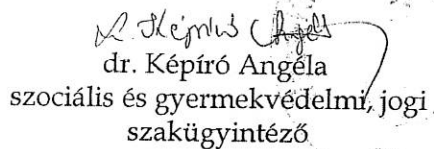 dr. Képíró Angéla
szociális és gyermekvédelmi, jogi
szakügyintéző